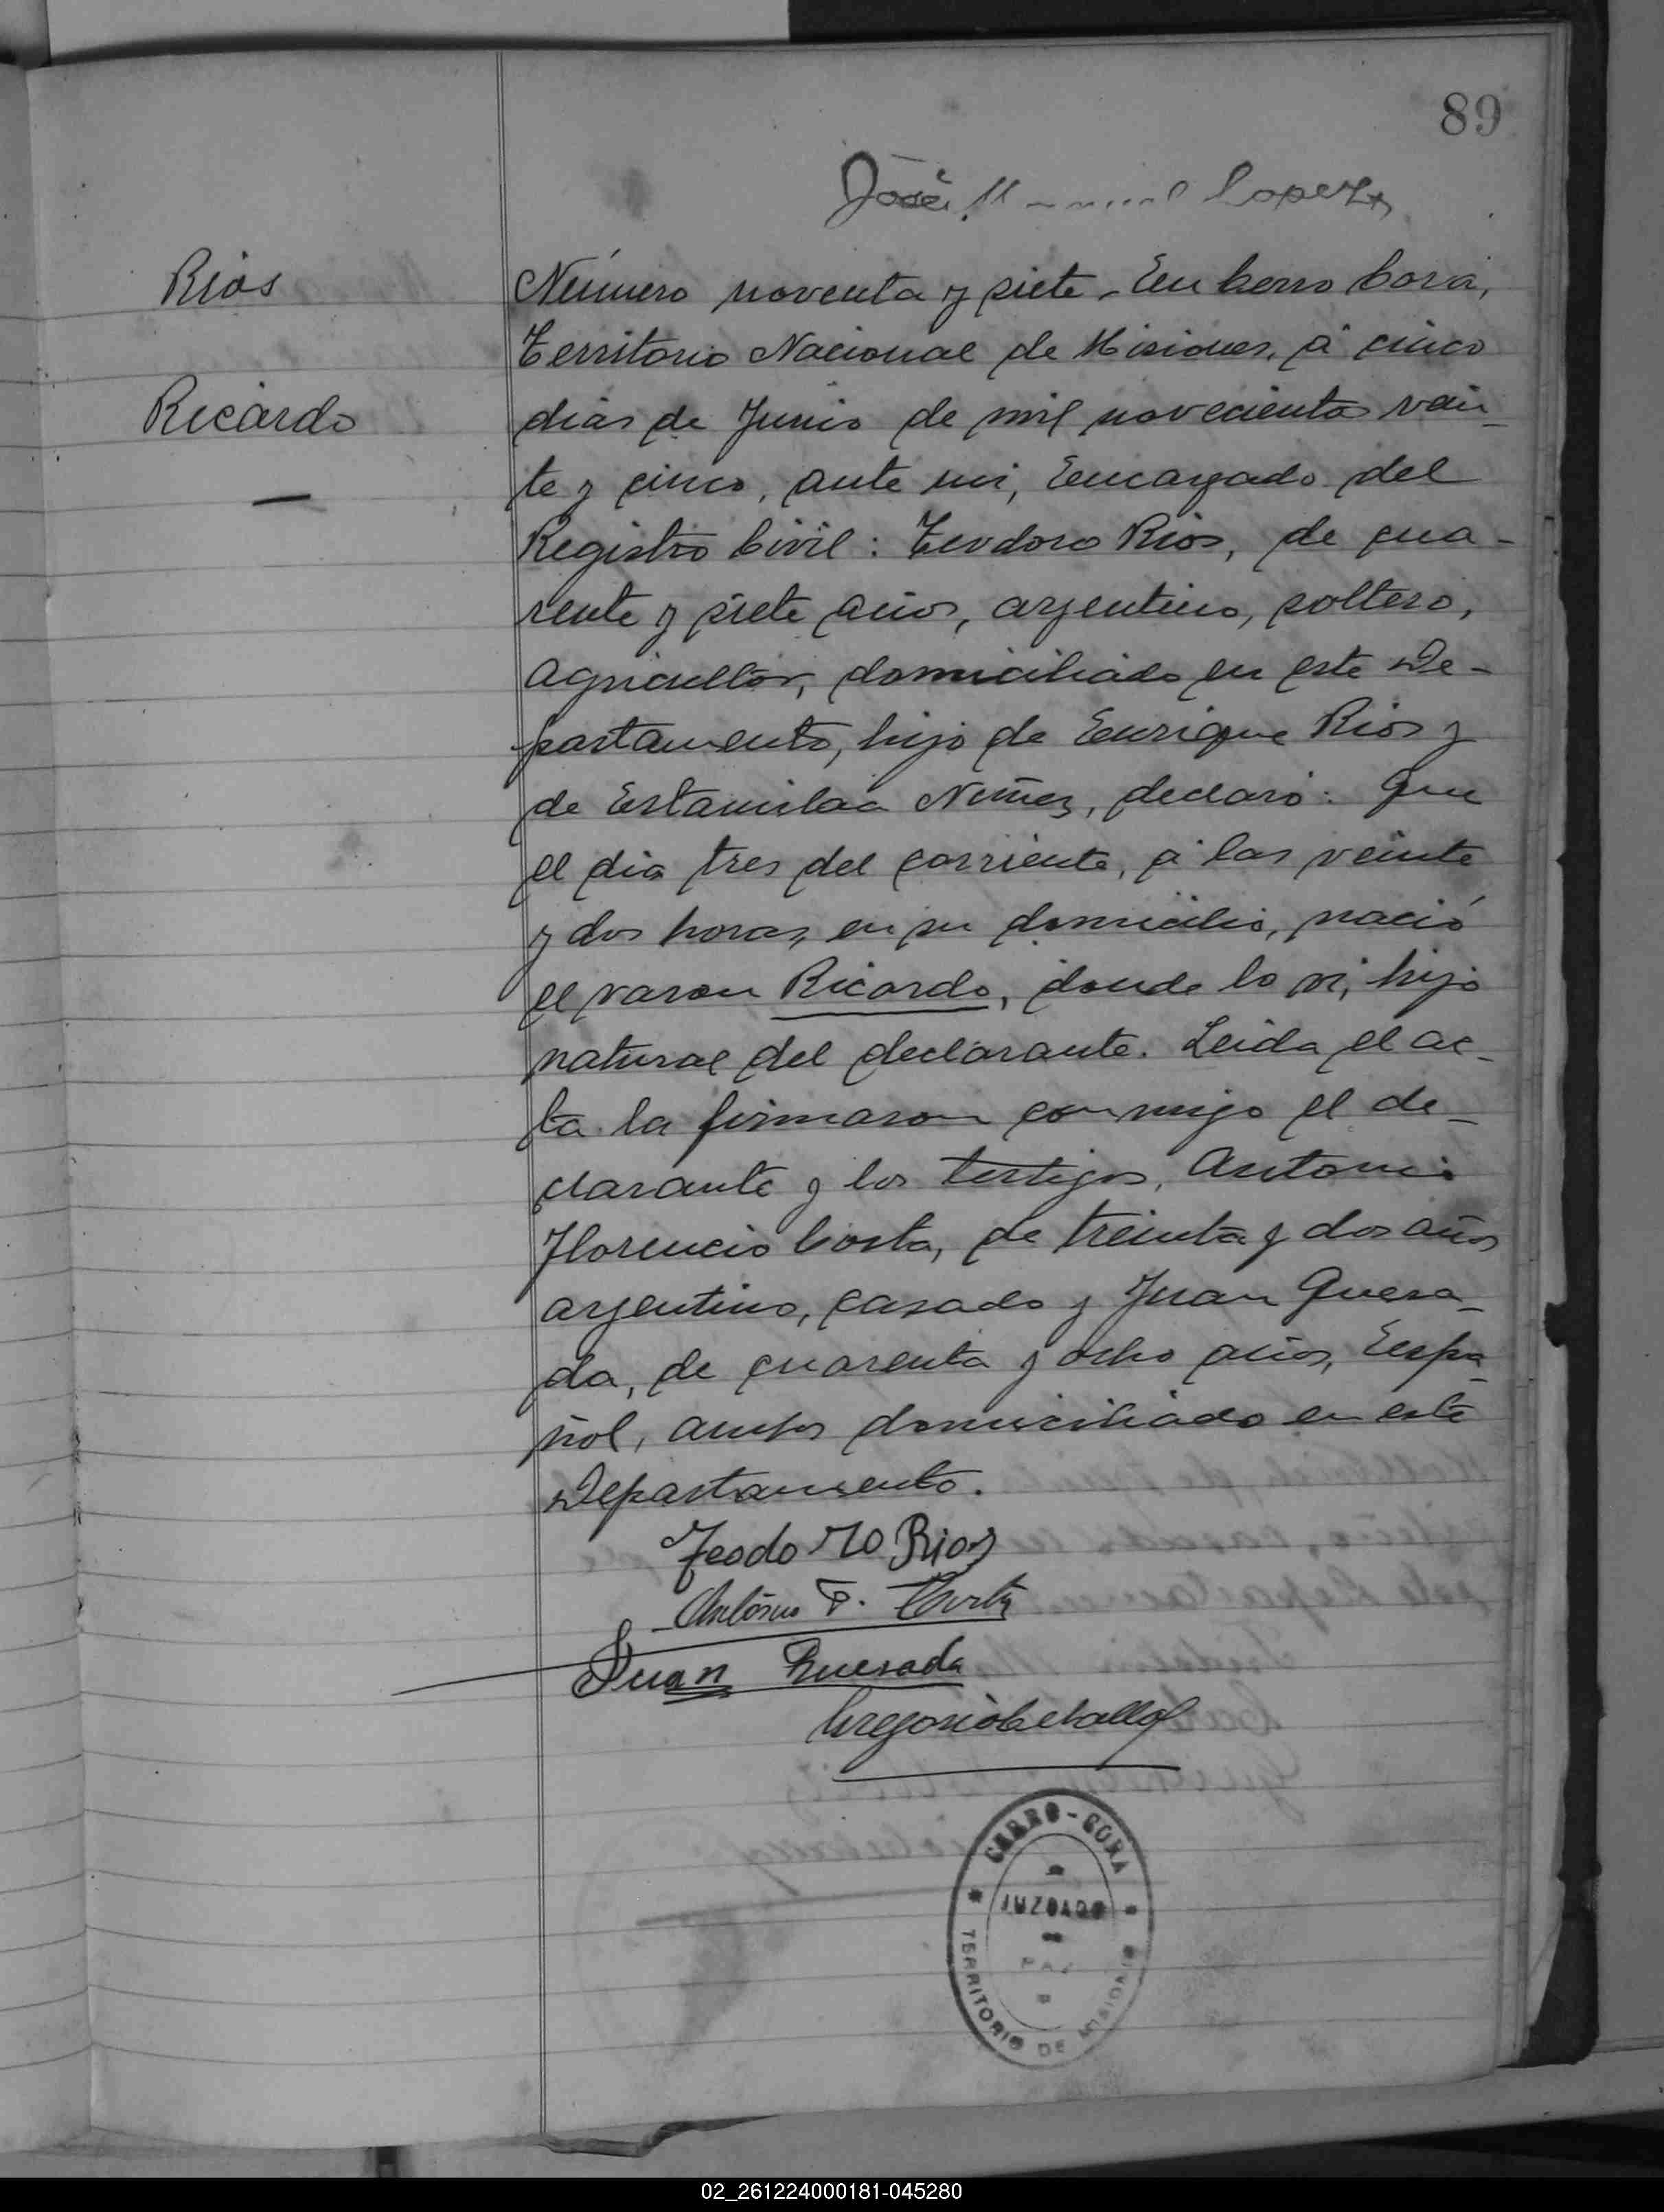 89
José Manuel Lopez
Rios
Ricardo
Número noventa y siete. En Cerro Corá,
Territorio Nacional de Misiones, á cinco
dias de Junio de mil novecientos vein-
te y cinco, ante mi, Encargado del
Registro Civil: Teodoro Rios, de cua-
rente y siete años, argentino, soltero,
agricultor, domiciliado en este De-
partamento, hijo de Enrique Rios y
de Estanislaa Nuñez, declaró: Que
el dia tres del corriente, á las veinte
y dos horas, en su domicilio, nació
el varon Ricardo, donde lo vi, hijo
natural del declarante. Leida el ac-
ta la firmaron conmigo el de-
clarante y los testigos, Antonio
Florencio Costa, de treinta y dos años
argentino, casado y Juan Quesa-
da, de cuarenta y ocho años, Espa-
ñol, ambos domiciliado en este
Departamento.
Teodoro Rios
Antonio F. Costa
Juan Quesada
Gregorio Ceballos
CERRO-CORA
JUZGADO
DE
PAZ
TERRITORIO DE MISIONES
02_261224000181-045280